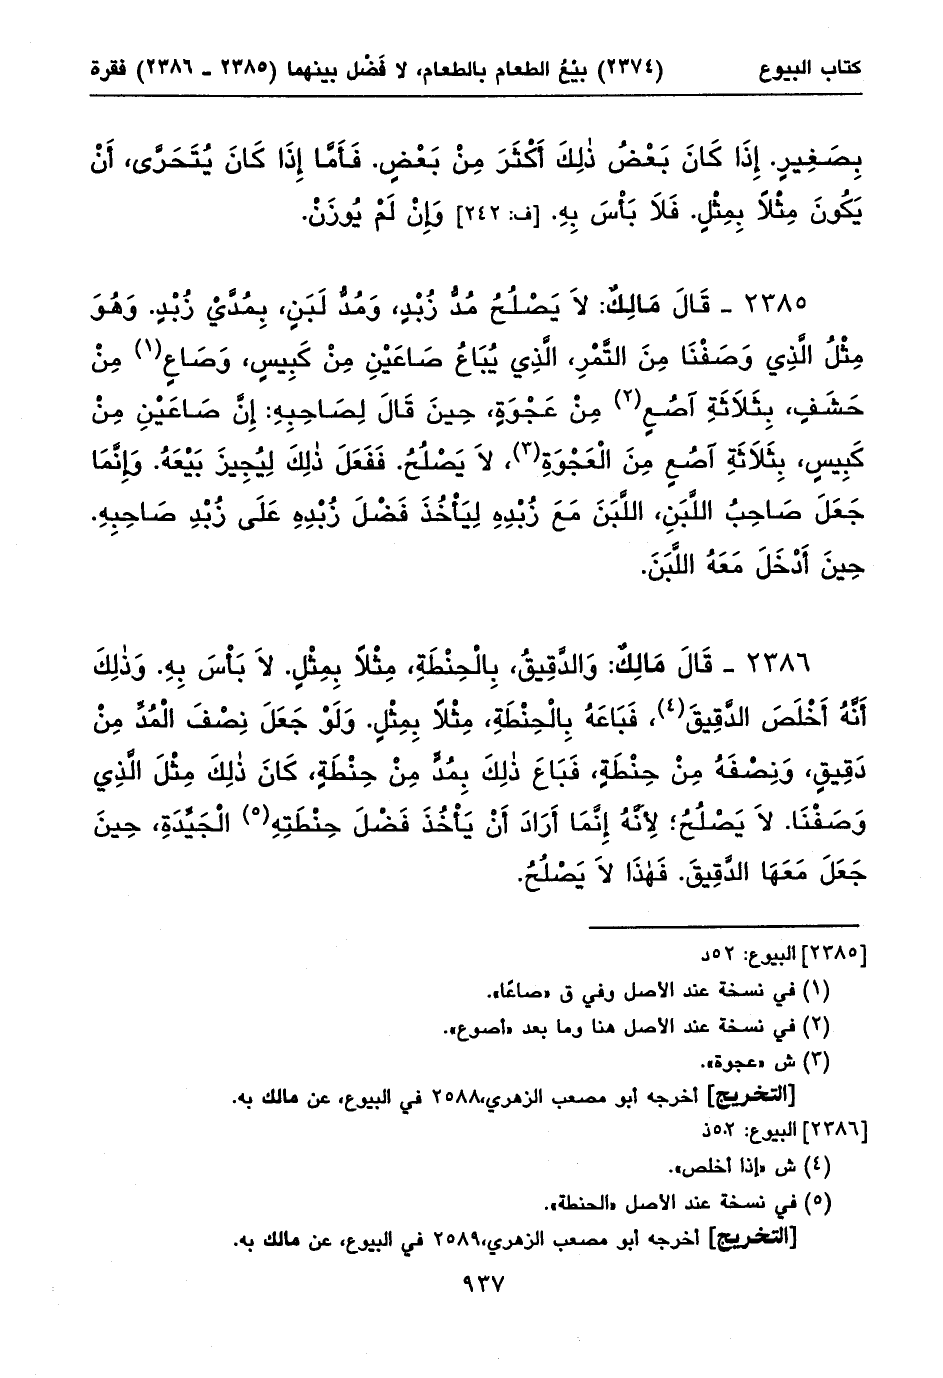 كتاب البيوع (٢٣٧٤) بيْعُ الطعام بالطعام، لا فَضْل بينهما (٢٣٨٥ - ٢٣٨٦) فقرة
بِصَغِيرٍ. إِذَا كَانَ بَعْضُ ذٰلِكَ أَكْثَرَ مِنْ بَعْضٍ. فَأَمَّا إِذَا كَانَ يُتَحَرَّى، أَنْ
يَكُونَ مِثْلاً بِمِثْلٍ. فَلاَ بَأْسَ بِهِ. [ف: ٢٤٢] وَإِنْ لَمْ يُوزَنْ.
٢٣٨٥ - قَالَ مَالِكٌ: لاَ يَصْلُحُ مُدُّ زُبْدٍ، وَمُدُّ لَبَنٍ، بِمُدَّيْ زُبْدٍ. وَهُوَ
مِثْلُ الَّذِي وَصَفْنَا مِنَ التَّمْرِ، الَّذِي يُبَاعُ صَاعَيْنِ مِنْ كَبِيسٍ، وَصَاعٍ(١) مِنْ
حَشَفٍ، بِثَلاَثَةِ آصُعٍ(٢) مِنْ عَجْوَةٍ، حِينَ قَالَ لِصَاحِبِهِ: إِنَّ صَاعَيْنِ مِنْ
كَبِيسٍ، بِثَلاَثَةِ آصُعٍ مِنَ الْعَجْوَةِ(٣)، لاَ يَصْلُحُ. فَفَعَلَ ذٰلِكَ لِيُجِيزَ بَيْعَهُ. وَإِنَّمَا
جَعَلَ صَاحِبُ اللَّبَنِ، اللَّبَنَ مَعَ زُبْدِهِ لِيَأْخُذَ فَضْلَ زُبْدِهِ عَلَى زُبْدِ صَاحِبِهِ.
حِينَ أَدْخَلَ مَعَهُ اللَّبَنَ.
٢٣٨٦ - قَالَ مَالِكٌ: وَالدَّقِيقُ، بِالْحِنْطَةِ، مِثْلاً بِمِثْلٍ. لاَ بَأْسَ بِهِ. وَذٰلِكَ
أَنَّهُ أَخْلَصَ الدَّقِيقَ(٤)، فَبَاعَهُ بِالْحِنْطَةِ، مِثْلاً بِمِثْلٍ. وَلَوْ جَعَلَ نِصْفَ الْمُدِّ مِنْ
دَقِيقٍ، وَنِصْفَهُ مِنْ حِنْطَةٍ، فَبَاعَ ذٰلِكَ بِمُدٍّ مِنْ حِنْطَةٍ، كَانَ ذٰلِكَ مِثْلَ الَّذِي
وَصَفْنَا. لاَ يَصْلُحُ؛ لِأَنَّهُ إِنَّمَا أَرَادَ أَنْ يَأْخُذَ فَضْلَ حِنْطَتِهِ(٥) الْجَيِّدَةِ، حِينَ
جَعَلَ مَعَهَا الدَّقِيقَ. فَهٰذَا لاَ يَصْلُحُ.
[٢٣٨٥] البيوع: ٥٢د
(١) في نسخة عند الأصل وفي ق «صاعًا».
(٢) في نسخة عند الأصل هنا وما بعد «أصوع».
(٣) ش «عجوة».
[التخريج] أخرجه أبو مصعب الزهري،٢٥٨٨ في البيوع، عن مالك به.
[٢٣٨٦] البيوع: ٥٠٢ذ
(٤) ش «إذا أخلص».
(٥) في نسخة عند الأصل «الحنطة».
[التخريج] أخرجه أبو مصعب الزهري،٢٥٨٩ في البيوع، عن مالك به.
٩٣٧